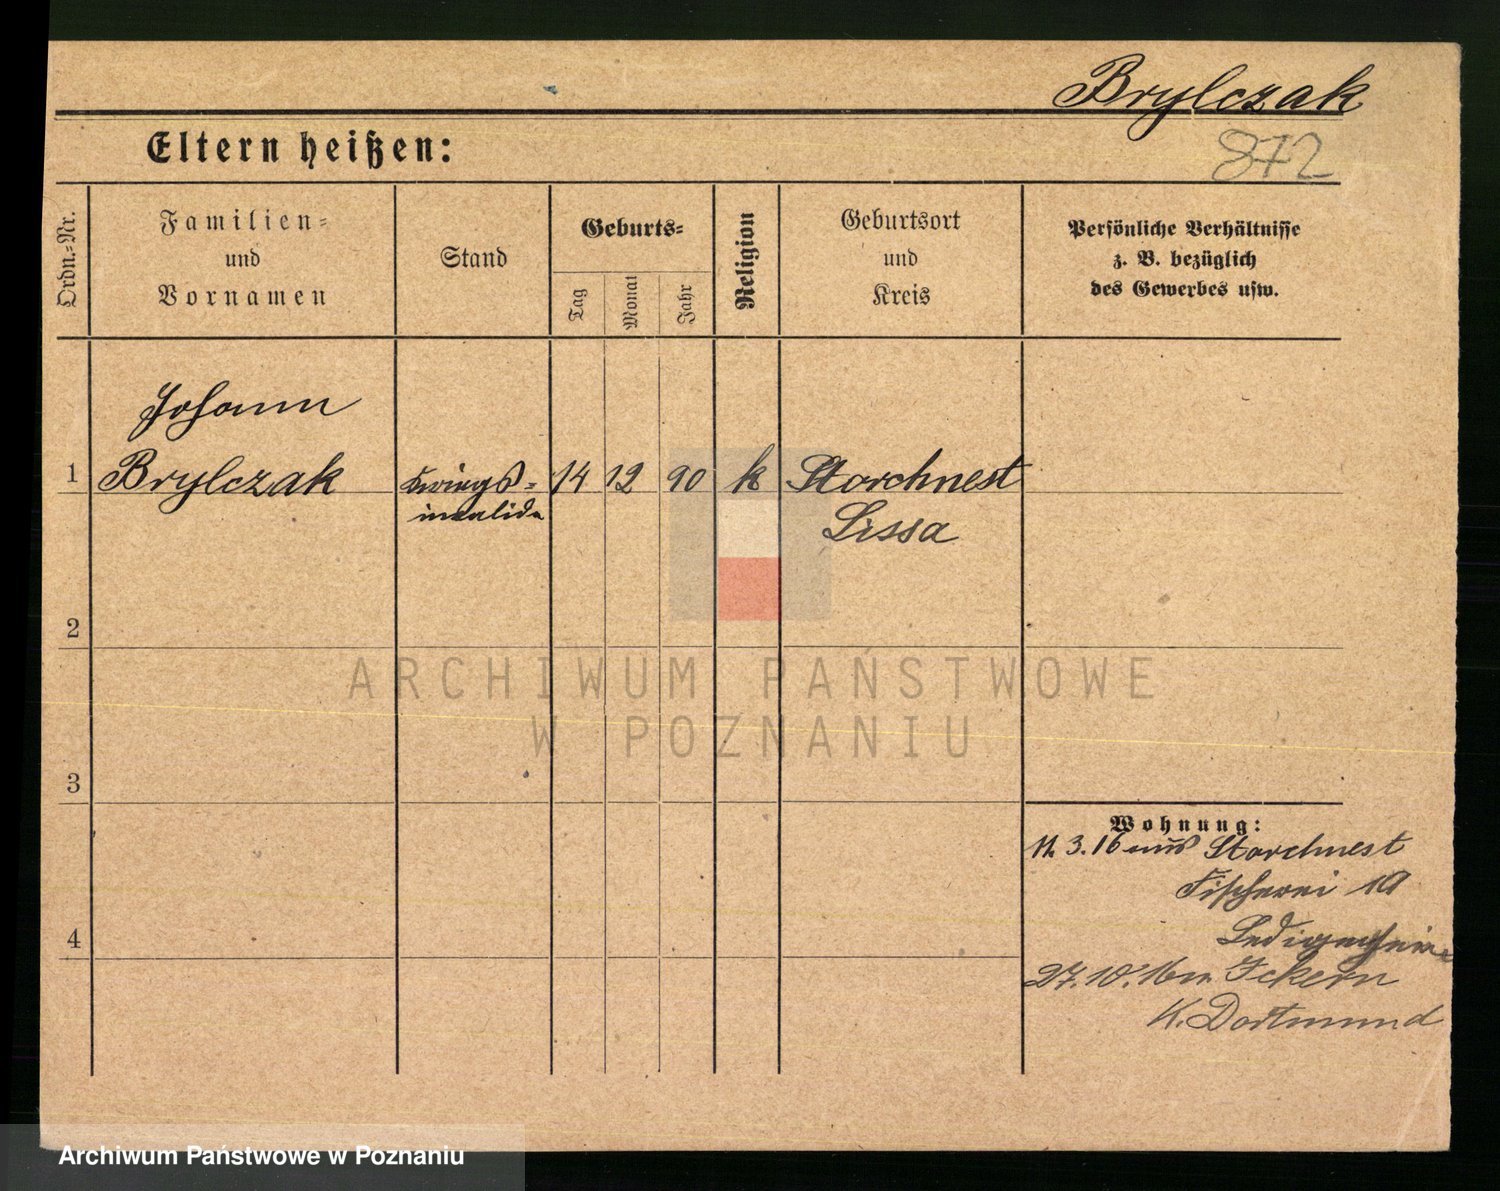 Brylczak
872
Eltern heißen:
Ordn.-Nr.
Familien-
und
Vornamen
Stand
Geburts-
Tag
Monat
Jahr
Religion
Geburtsort
und
Kreis
Persönliche Verhältnisse
z. B. bezüglich
des Gewerbes usw.
Johann
1 Brylczak Kriegs- 14 12 90 k Storchnest
invalide Lissa
2
ARCHIWUM PAŃSTWOWE
W POZNANIU
3
Wohnung:
11.3.16 aus Storchnest
Fischerei 19
4
Ledigenheim
27.10.16 n. Ickern
K. Dortmund
Archiwum Państwowe w Poznaniu